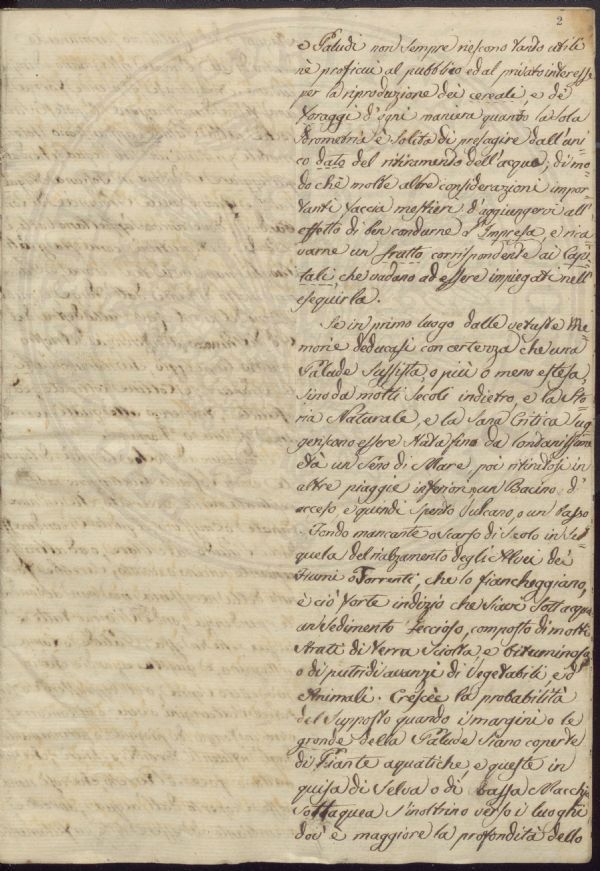 2
e Paludi non sempre riescono tanto utili
nè proficui al pubblico ed al privato interesse
per la riproduzione dei cereali, e de'
foraggi d'ogni maniera quanto la sola
Idrometria è solita di presagire dall'uni-
co dato del ritiramento dell'acque; di mo-
do che molte altre considerazioni impor-
tanti faccia mestieri d'aggiungervi all'
effetto di ben condurne l'Impresa e rica-
varne un frutto corrispondente ai Capi-
tali che vadano ad essere impiegati nell'
eseguirla.
Se in primo luogo dalle vetuste Me-
morie deducasi con certezza che una
Palude sussista, o più o meno estesa,
sino da molti secoli indietro, e la Sto-
ria Naturale, e la sana Critica sug-
geriscano essere stata fino da lontanissima
età un Seno di Mare, poi ritiratosi in
altre piaggie inferiori, un Bacino d'
acceso, e quindi spento Vulcano, o un basso
Fondo mancante o scarso di scolo in se-
quela del rialzamento degli Alvei dei
Fiumi o Torrenti, che lo fiancheggiano,
è ciò forte indizio che siavi sott'acqua
un sedimento feccioso, composto di molti
strati di terra sciolta e bituminosa
o di putridi avanzi di Vegetabili, e d'
Animali. Cresce la probabilità
del supposto quando i margini o le
gronde della Palude siano coperte
di Piante aquatiche e queste in
guisa di Selva o di bassa Macchia
sottaquea s'inoltrino verso i luoghi
dov'è maggiore la profondità dello